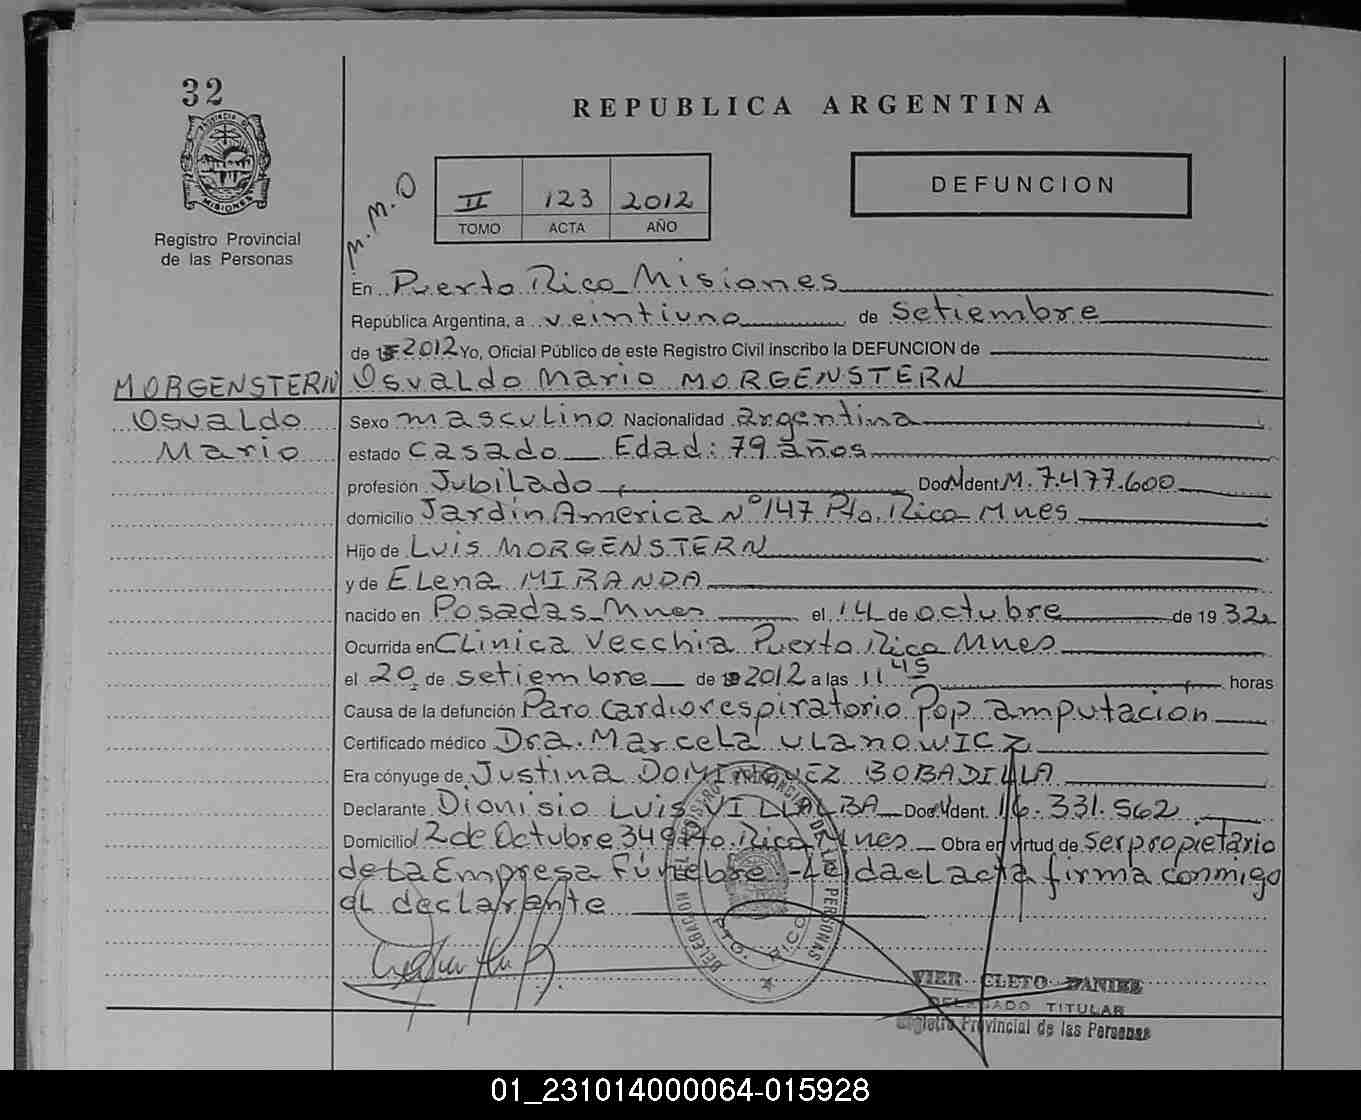 32
PROVINCIA DE
MISIONES
Registro Provincial
de las Personas
REPUBLICA ARGENTINA
M.M.O
II 123 2012
TOMO ACTA AÑO
DEFUNCION
En Puerto Rico Misiones
República Argentina, a veintiuno de setiembre
de 2012 Yo, Oficial Público de este Registro Civil inscribo la DEFUNCION de
MORGENSTERN Osvaldo Mario MORGENSTERN
Osvaldo Sexo masculino Nacionalidad argentina
Mario estado casado Edad: 79 años
profesión Jubilado Doc. Ident. M. 7.477.600
domicilio Jardín América Nº 147 Pto. Rico Mnes
Hijo de Luis MORGENSTERN
y de Elena MIRANDA
nacido en Posadas Mnes el 14 de octubre de 1932
Ocurrida en Clinica Vecchia Puerto Rico Mnes
el 20 de setiembre de 2012 a las 11 45 horas
Causa de la defunción Paro cardiorespiratorio Pop amputacion
Certificado médico Dra. Marcela ULANOWICZ
Era cónyuge de Justina DOMINGUEZ BOBADILLA
Declarante Dionisio Luis VILLALBA Doc. Ident. 16.331.562
Domicilio 2 de Octubre 349 Pto. Rico Mnes Obra en virtud de ser propietario
de la Empresa Fúnebre.- Leída el acta firma conmigo
el declarante
DELEGACION DEL REGISTRO PROVINCIAL DE LAS PERSONAS
PTO. RICO
VIER CLETO DANIEL
DELEGADO TITULAR
Registro Provincial de las Personas
01_231014000064-015928